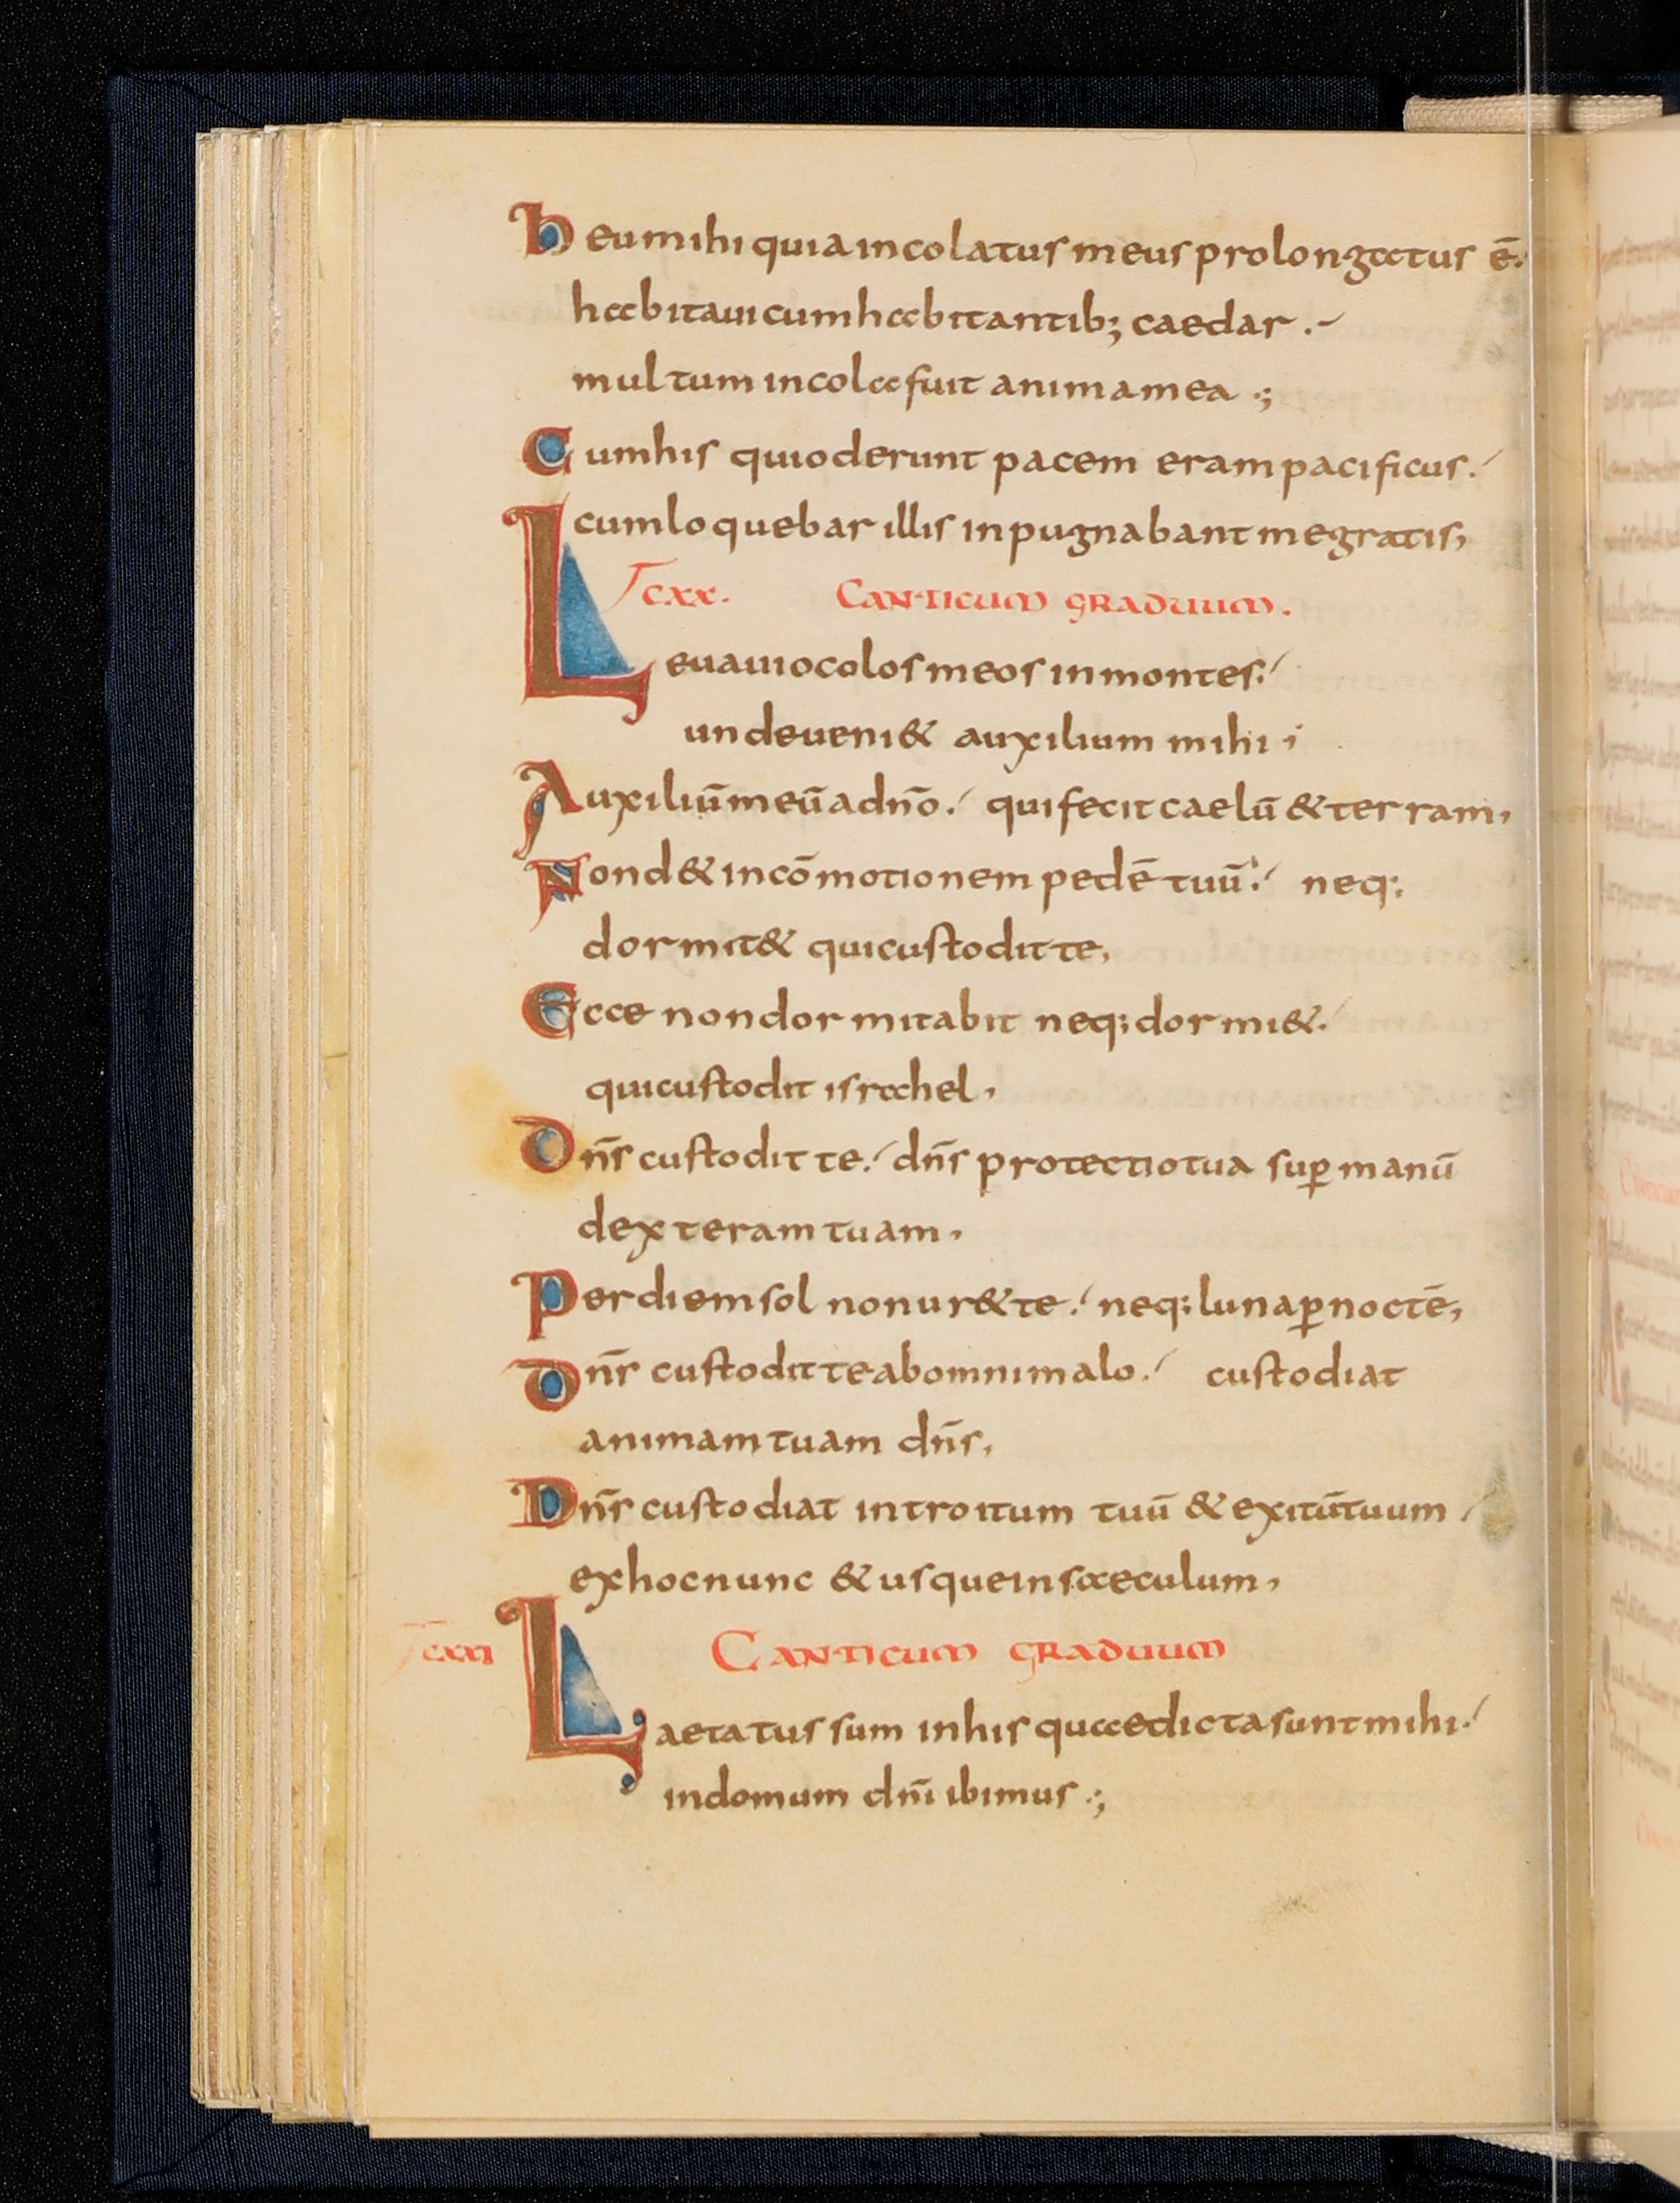 Heu mihi quia incolatus meus prolongatus ē.
habitaui cum habitantib; caedar .-
multum incola fuit anima mea .;
Cum his qui oderunt pacem eram pacificus.
cum loquebar illis inpugnabant me gratis,
cxx. CANTICUM GRADUUM.
Leuaui ocolos meos in montes.
unde ueni& auxilium mihi ;
Auxiliū meū a dn̄o. qui fecit caelū & terram,
Non d& in cōmotionem pedē tuū. neq;
dormit& qui custodit te,
Ecce non dormitabit neq; dormi&.
qui custodit israhel,
Dn̄s custodit te. dn̄s protectio tua sup̱ manū
dexteram tuam,
Per diem sol non ur& te. neq; luna p̱ noctē,
Dn̄s custodit te ab omni malo. custodiat
animam tuam dn̄s,
Dn̄s custodiat introitum tuū & exitū tuum
ex hoc nunc & usque in saeculum,
cxxi CANTICUM GRADUUM
Laetatus sum in his quae dicta sunt mihi.
in domum dn̄i ibimus .;